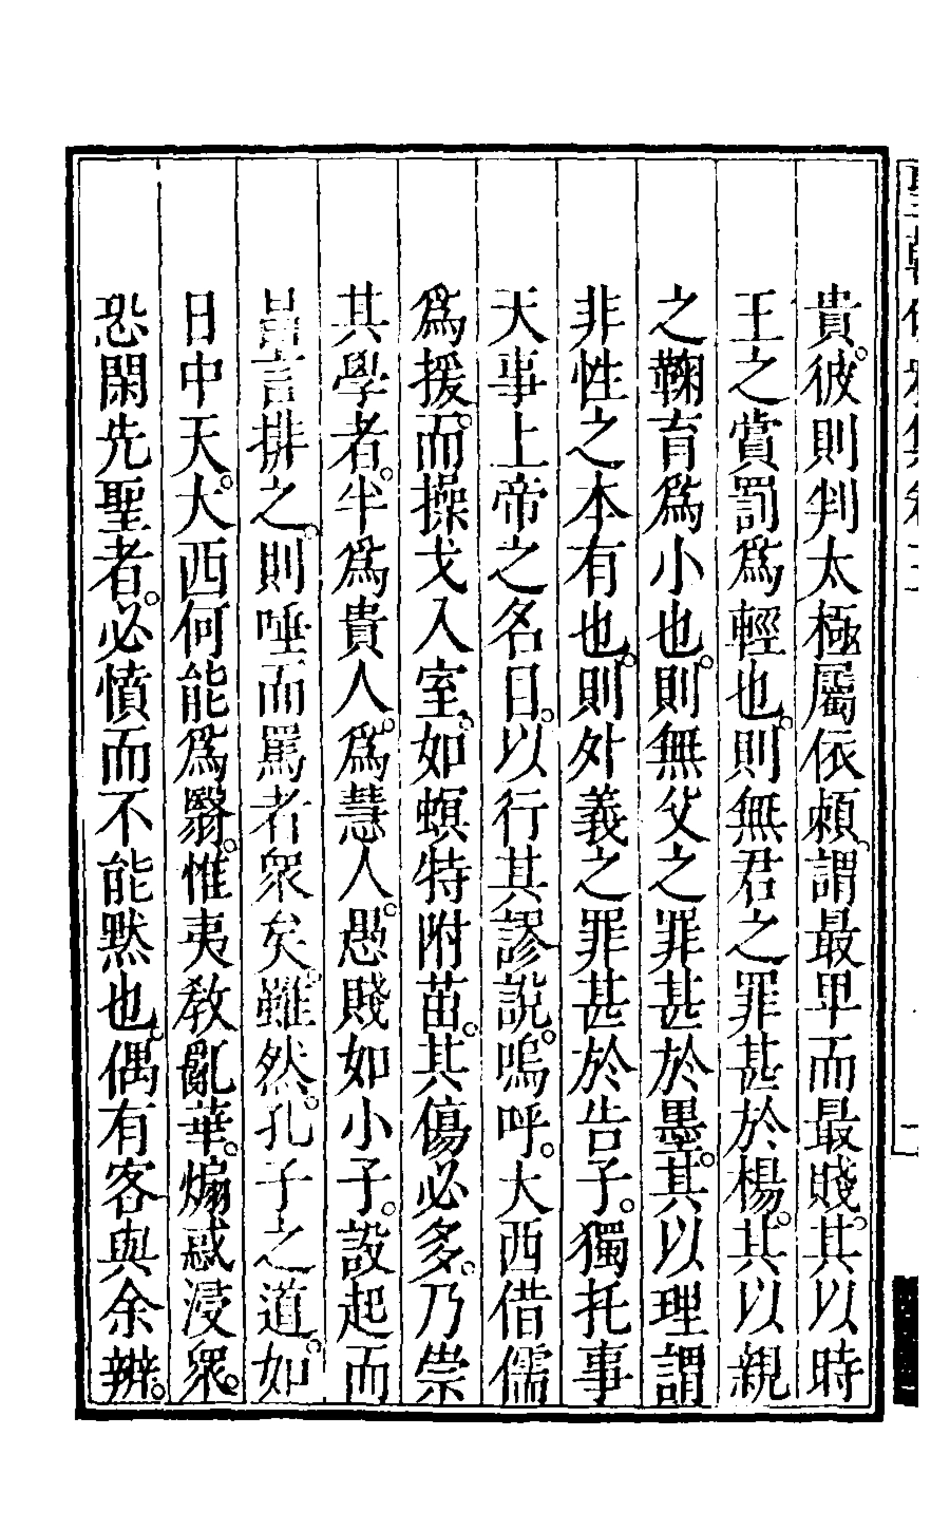 貴。彼則判太極屬依頼、謂最卑而最賤。其以時
王之賞罰爲輕也。則無君之罪甚於楊。其以親
之鞠育爲小也。則無父之罪甚於墨。其以理謂
非性之本有也。則外義之罪甚於告子。獨托事
天事上帝之名目。以行其謬說。嗚呼。大西借儒
爲援。而操戈入室。如螟特附苗。其傷必多。乃崇
其學者。半爲貴人。爲慧人。愚賤如小子。設起而
昌言排之。則唾而罵者衆矣。雖然。孔子之道。如
日中天。大西何能爲翳。惟夷敎亂華。煽惑浸衆。
恐閑先聖者。必憤而不能默也。偶有客與余辨。